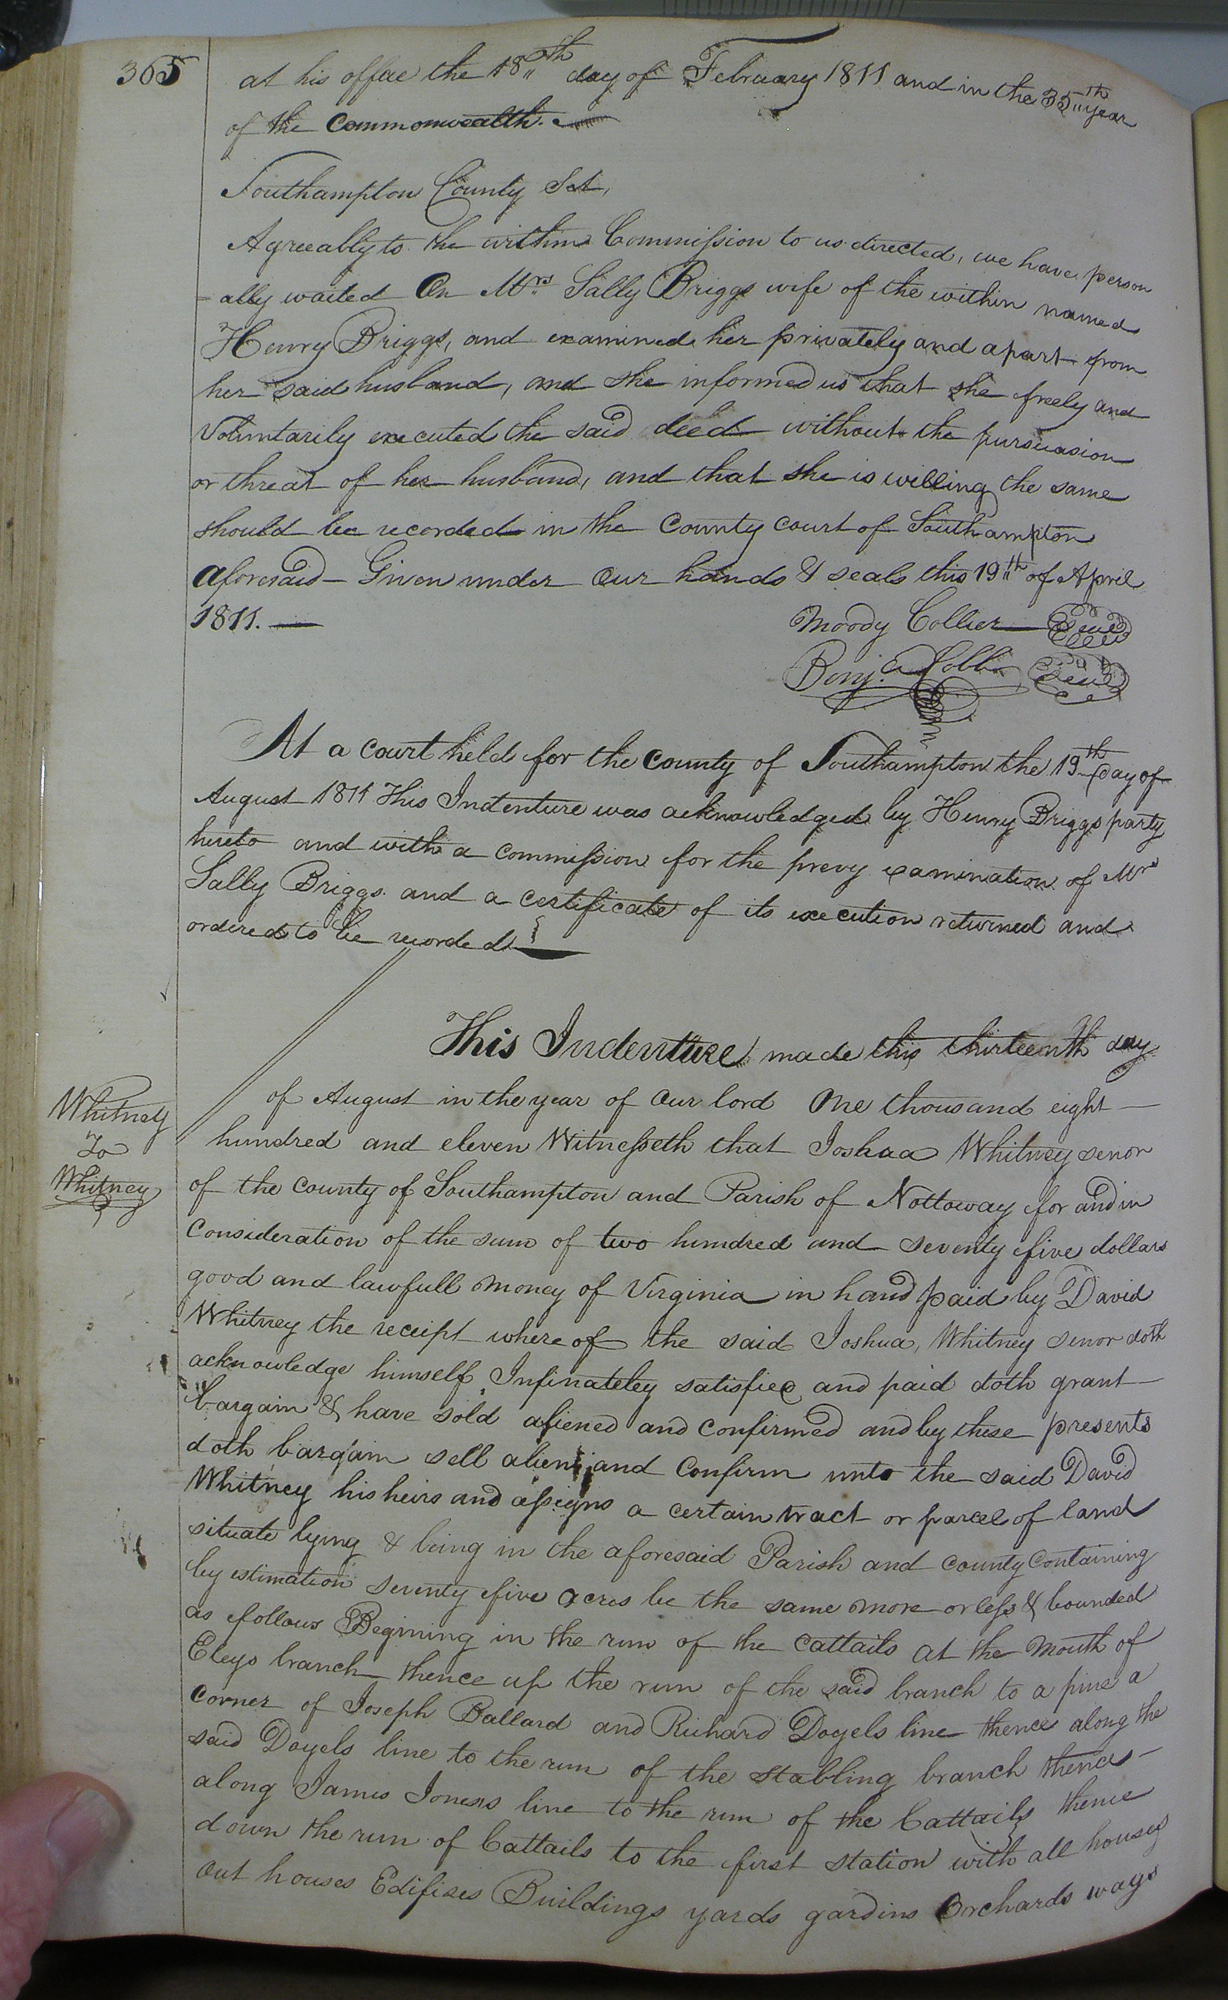 365
at his office the 18th day of February 1811 and in the 35th year
of the Commonwealth.
Southampton County Sct,
Agreeably to the within Commission to us directed, we have person
-ally waited On Mrs Sally Briggs wife of the within named
Henry Briggs, and examined her privately and apart from
her said husband, and she informed us that she freely and
Voluntarily executed the said deed without the pursuasion
or threat of her husband, and that she is willing the same
should be recorded in the County court of Southampton
aforesaid – Given under Our hands & seals this 19th of April
1811. —
Moody Collier Seal
Benja Cobb Seal
At a court held for the county of Southampton the 19th day of
August 1811 This Indenture was acknowledged by Henry Briggs party
hereto and with a commission for the prevy examination of Mrs
Sally Briggs and a certificate of its execution returned and
ordered to be recorded
Whitney
To
Whitney
This Indenture made this thirteenth day
of August in the year of Our lord One thousand eight —
hundred and eleven Witnesseth that Joshua Whitney senor
of the county of Southampton and Parish of Nottoway for and in
Consideration of the sum of two hundred and seventy five dollars
good and lawfull money of Virginia in hand paid by David
Whitney the receipt where of the said Joshua, Whitney senor doth
acknowledge himself Infinateley satisfied and paid doth grant —
bargain & have sold aliened and confirmed and by these presents
doth bargain sell alien and Confirm unto the said David
Whitney his heirs and assigns a certain tract or parcel of land
situate lying & being in the aforesaid Parish and county Containing
by estimation seventy five acres be the same more or less & bounded
as follows Begining in the run of the Cattails at the Mouth of
Eleys branch thence up the run of the said branch to a pine a
Corner of Joseph Ballard and Richard Doyels line thence along the
said Doyels line to the run of the Stabling branch thence —
along James Joness line to the run of the Cattails thence
down the run of Cattails to the first station with all houses
Out houses Edifises Buildings yards gardins Orchards ways